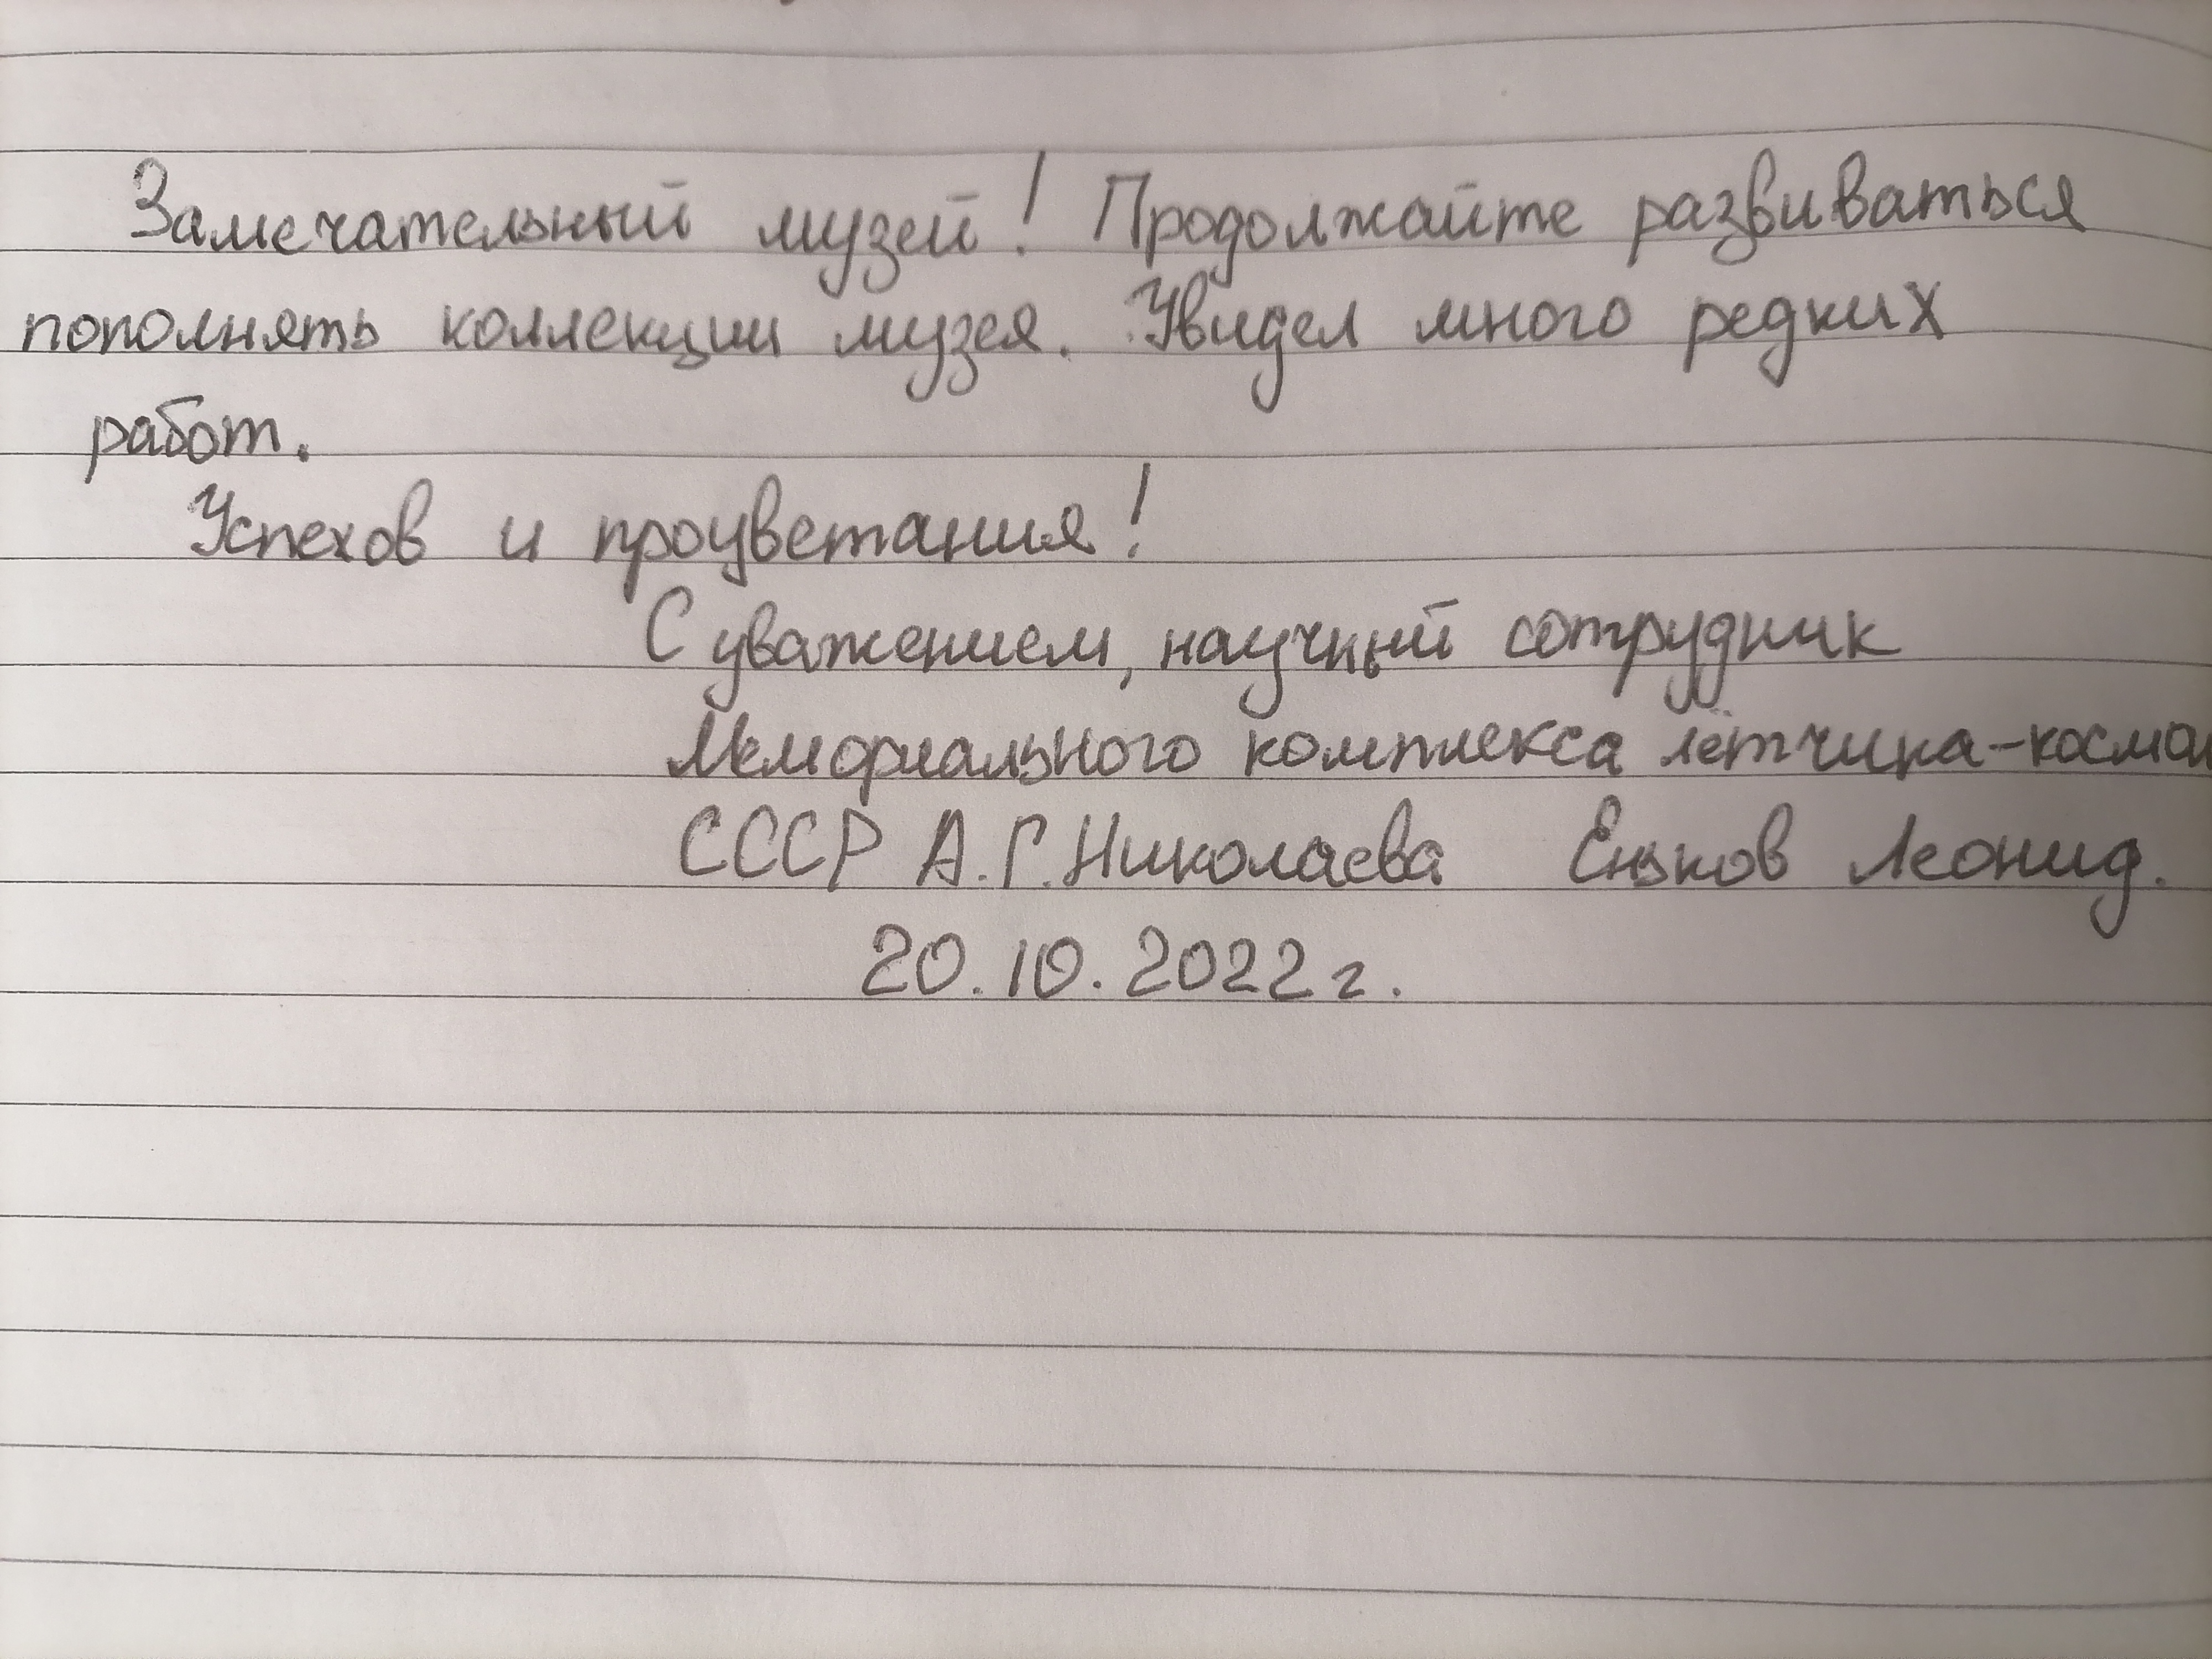 Замечательный музей! Продолжайте развиваться
пополнять коллекции музея. Увидел много редких
работ.
Успехов и процветания!
С уважением, научный сотрудник
Мемориального комплекса лётчика-космон
СССР А.Г. Николаева Леонид.
20.10.2022 г.